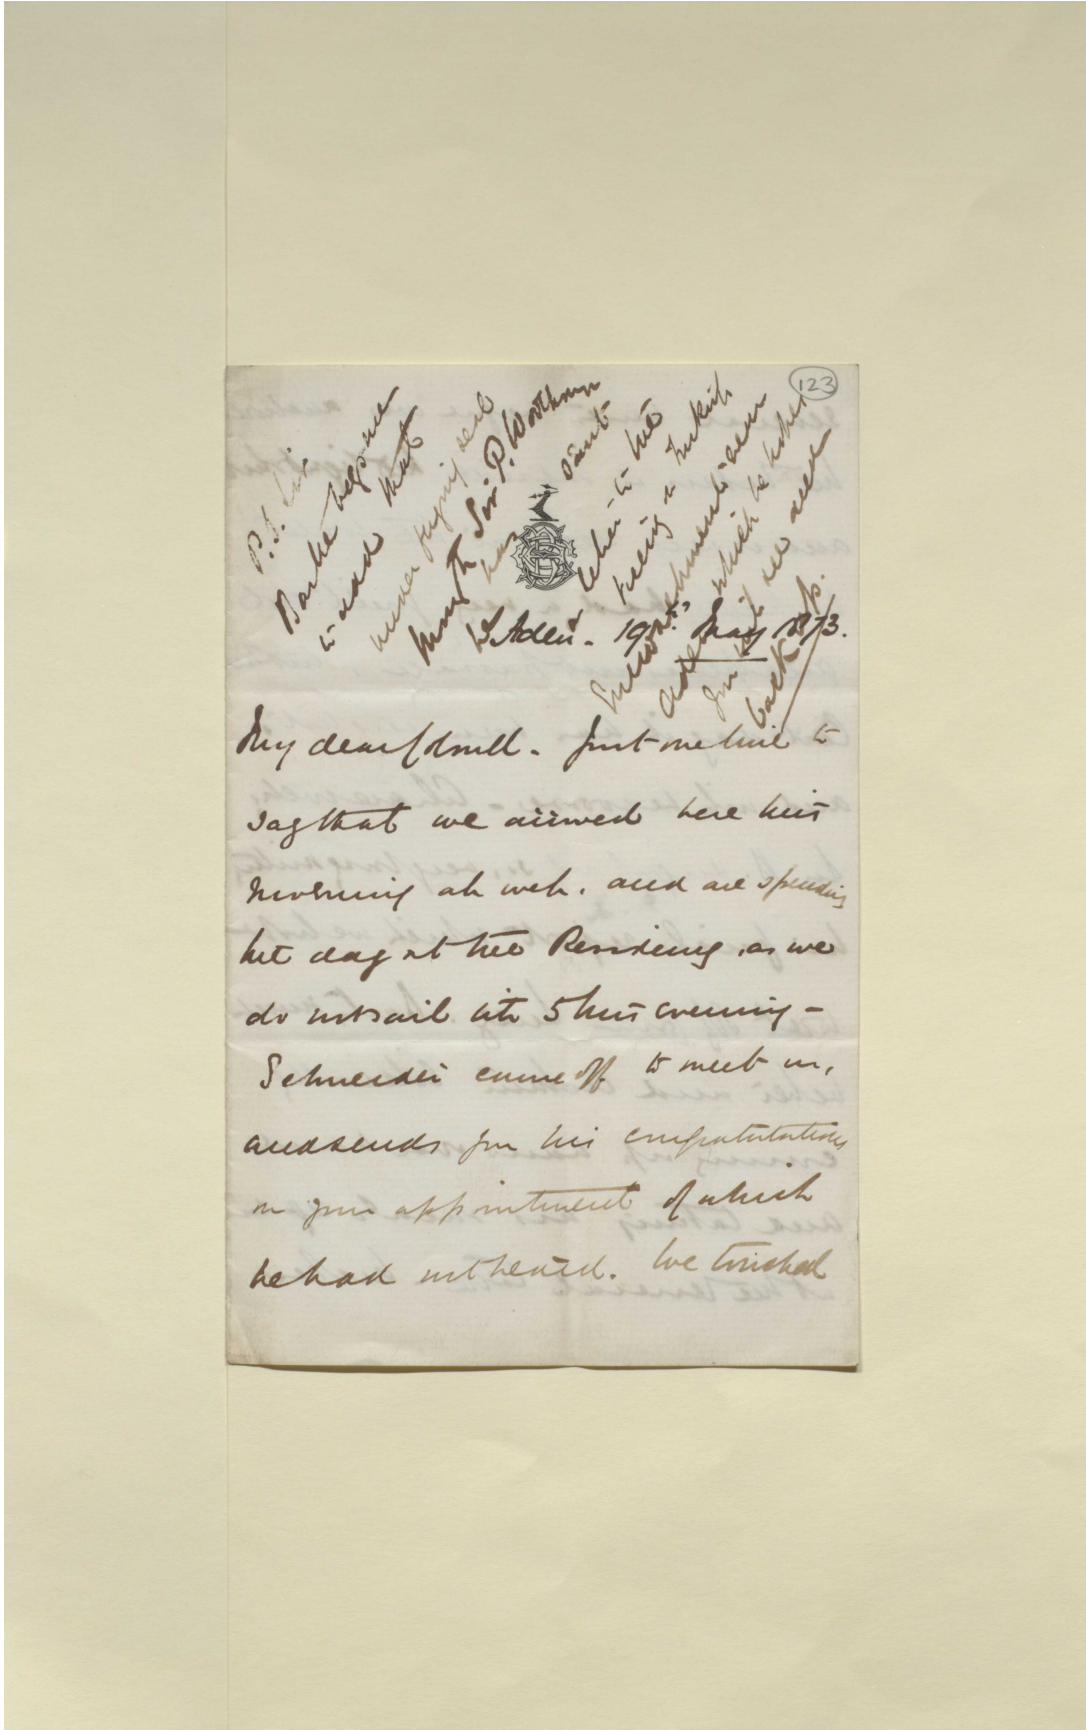 123
P.S. Sir
Bartle begs me
to add that
under flying seal
he has sent
letter to the
Turkish
encroachments
Aden which he hopes
you will see and
back up.
Aden. 19th. May 1873.
My dear Colonel. Just one line to
say that we arrived here this
morning all well. and are spending
the day at the Residency, as we
do not sail till 5 this evening -
Schneider came off to meet us,
and sends you his congratulations
on your appointment of which
he had not heard. We touched